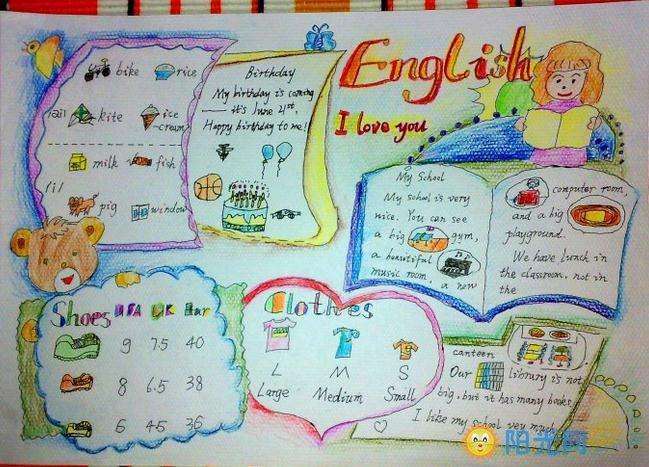 English
I love you
bike
rice
/ai/
kite
ice
cream
milk
fish
/i/
pig
window
Birthday
My birthday is coming
it's June 4st.
Happy birthday to me!
My School
My school is very
nice. You can see
a big gym,
a beautiful
music room,
a new
computer room,
and a big
playground.
We have lunch in
the classroom. not in
the
canteen
Our library is not
big, but it has many books
I like my school very much
Shoes USA UK Eur
9 7.5 40
8 6.5 38
6 4.5 36
Clothes
L M S
Large Medium Small
阳光网